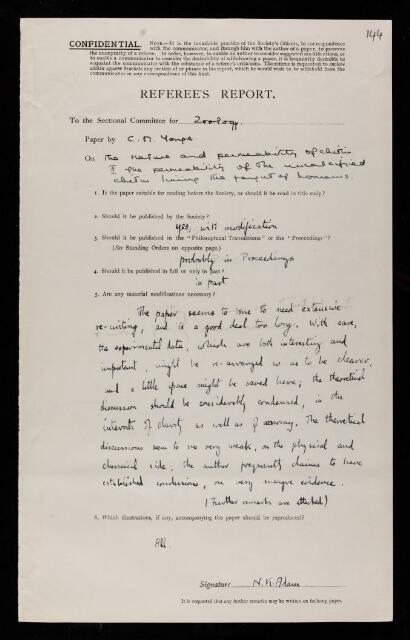 144
CONFIDENTIAL. NOTE.—It is the invariable practice of the Society's Officers, in correspondence
with the communicator, and through him with the author of a paper, to preserve
the anonymity of a referee. In order, however, to enable an author to consider suggested modifications, or
to enable a communicator to consider the desirability of withdrawing a paper, it is frequently desirable to
acquaint the communicator with the substance of a referee's criticisms. The referee is requested to enclose
within square brackets any section of or phrase in his report, which he would wish to be withheld from the
communicator in any correspondence of this kind.
REFEREE'S REPORT.
To the Sectional Committee for Zoology.
Paper by C. M. Yonge
On The nature and permeability of chitin
I The permeability of the uncalcified
chitin lining the foregut of Homarus.
1. Is the paper suitable for reading before the Society, or should it be read in title only?
2. Should it be published by the Society?
yes, with modification
3. Should it be published in the "Philosophical Transactions" or the "Proceedings"?
(See Standing Orders on opposite page.)
probably in Proceedings
4. Should it be published in full or only in part?
in part
5. Are any material modifications necessary?
The paper seems to me to need extensive
re-writing, and is a good deal too long. With care,
the experimental data, which are both interesting and
important, might be re-arranged so as to be clearer,
and a little space might be saved here; the theoretical
discussion should be considerably condensed, in the
interests of clarity as well as of economy. The theoretical
discussions seem to me very weak, on the physical and
chemical side; the author frequently claims to have
established conclusions, on very meagre evidence.
(Further remarks are attached)
6. Which illustrations, if any, accompanying the paper should be reproduced?
All.
Signature N. K. Adam
It is requested that any further remarks may be written on foolscap paper.